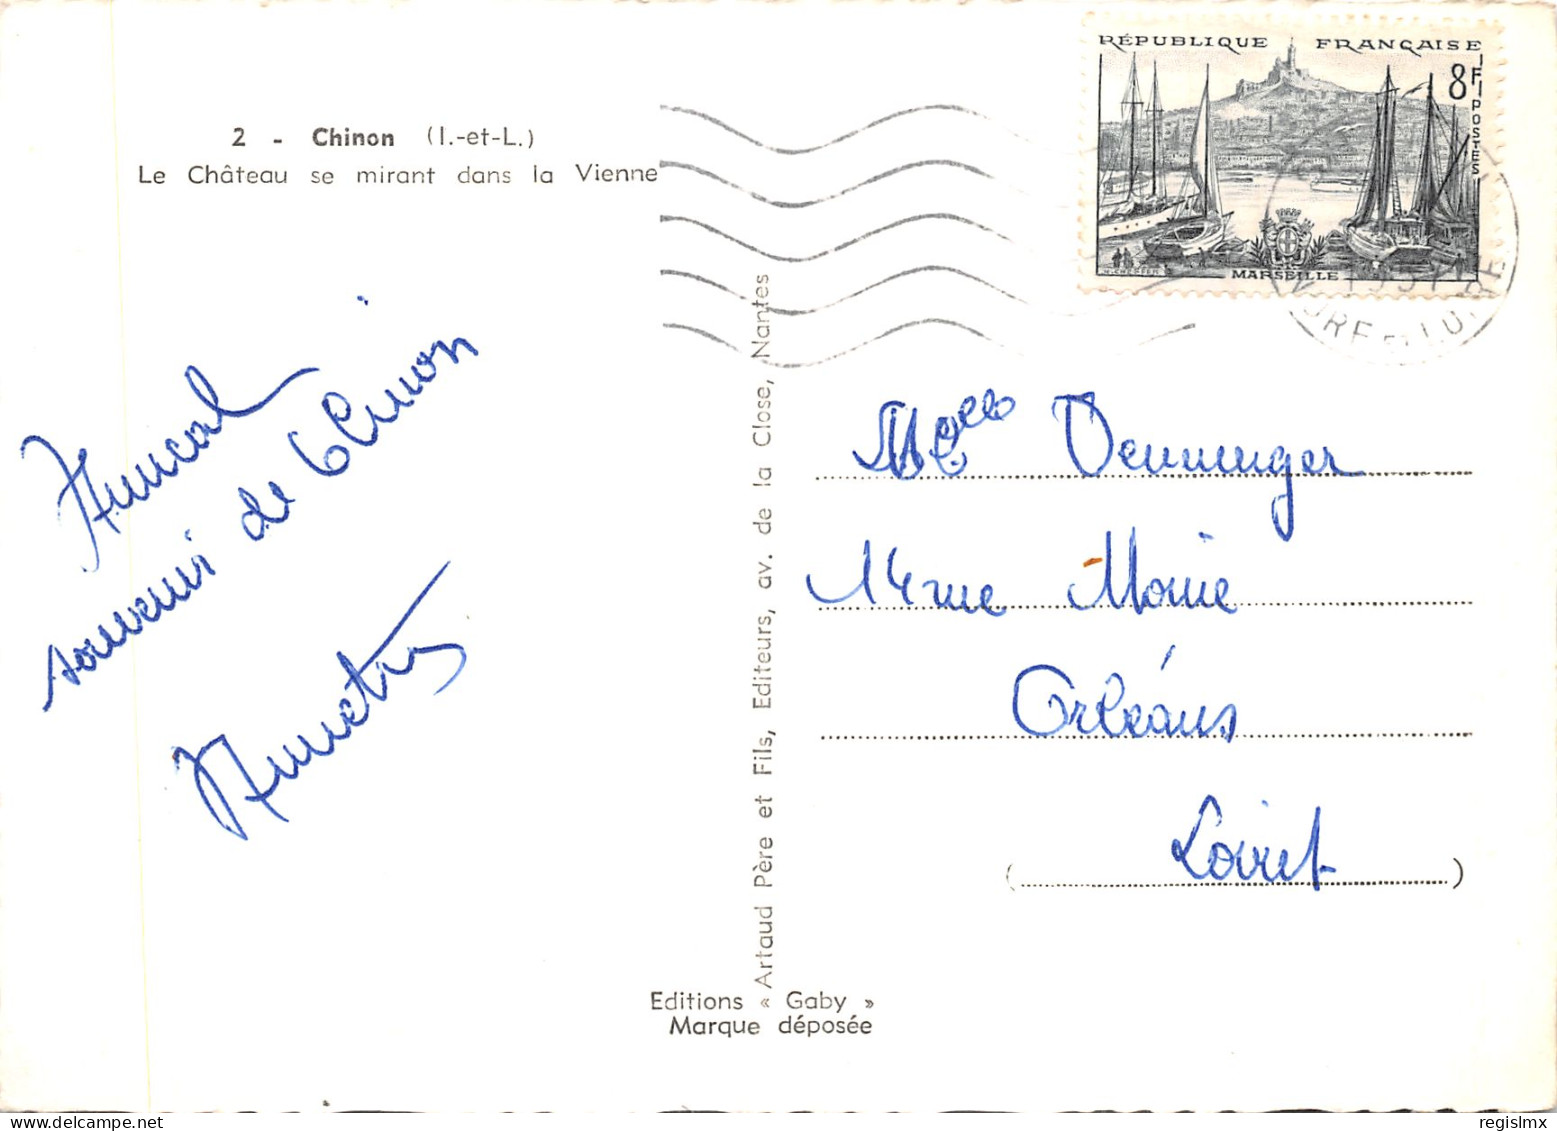 2 - Chinon (I.-et-L.)
Le Château se mirant dans la Vienne
RÉPUBLIQUE FRANÇAISE
8F
POSTES
MARSEILLE
Amical
souvenir de Chinon
Artaud Père et Fils, Editeurs, av. de la Close, Nantes
Melle Venninger
14 rue
Orléans
Loiret
( )
Editions « Gaby »
Marque déposée
delcampe.net
regislmx